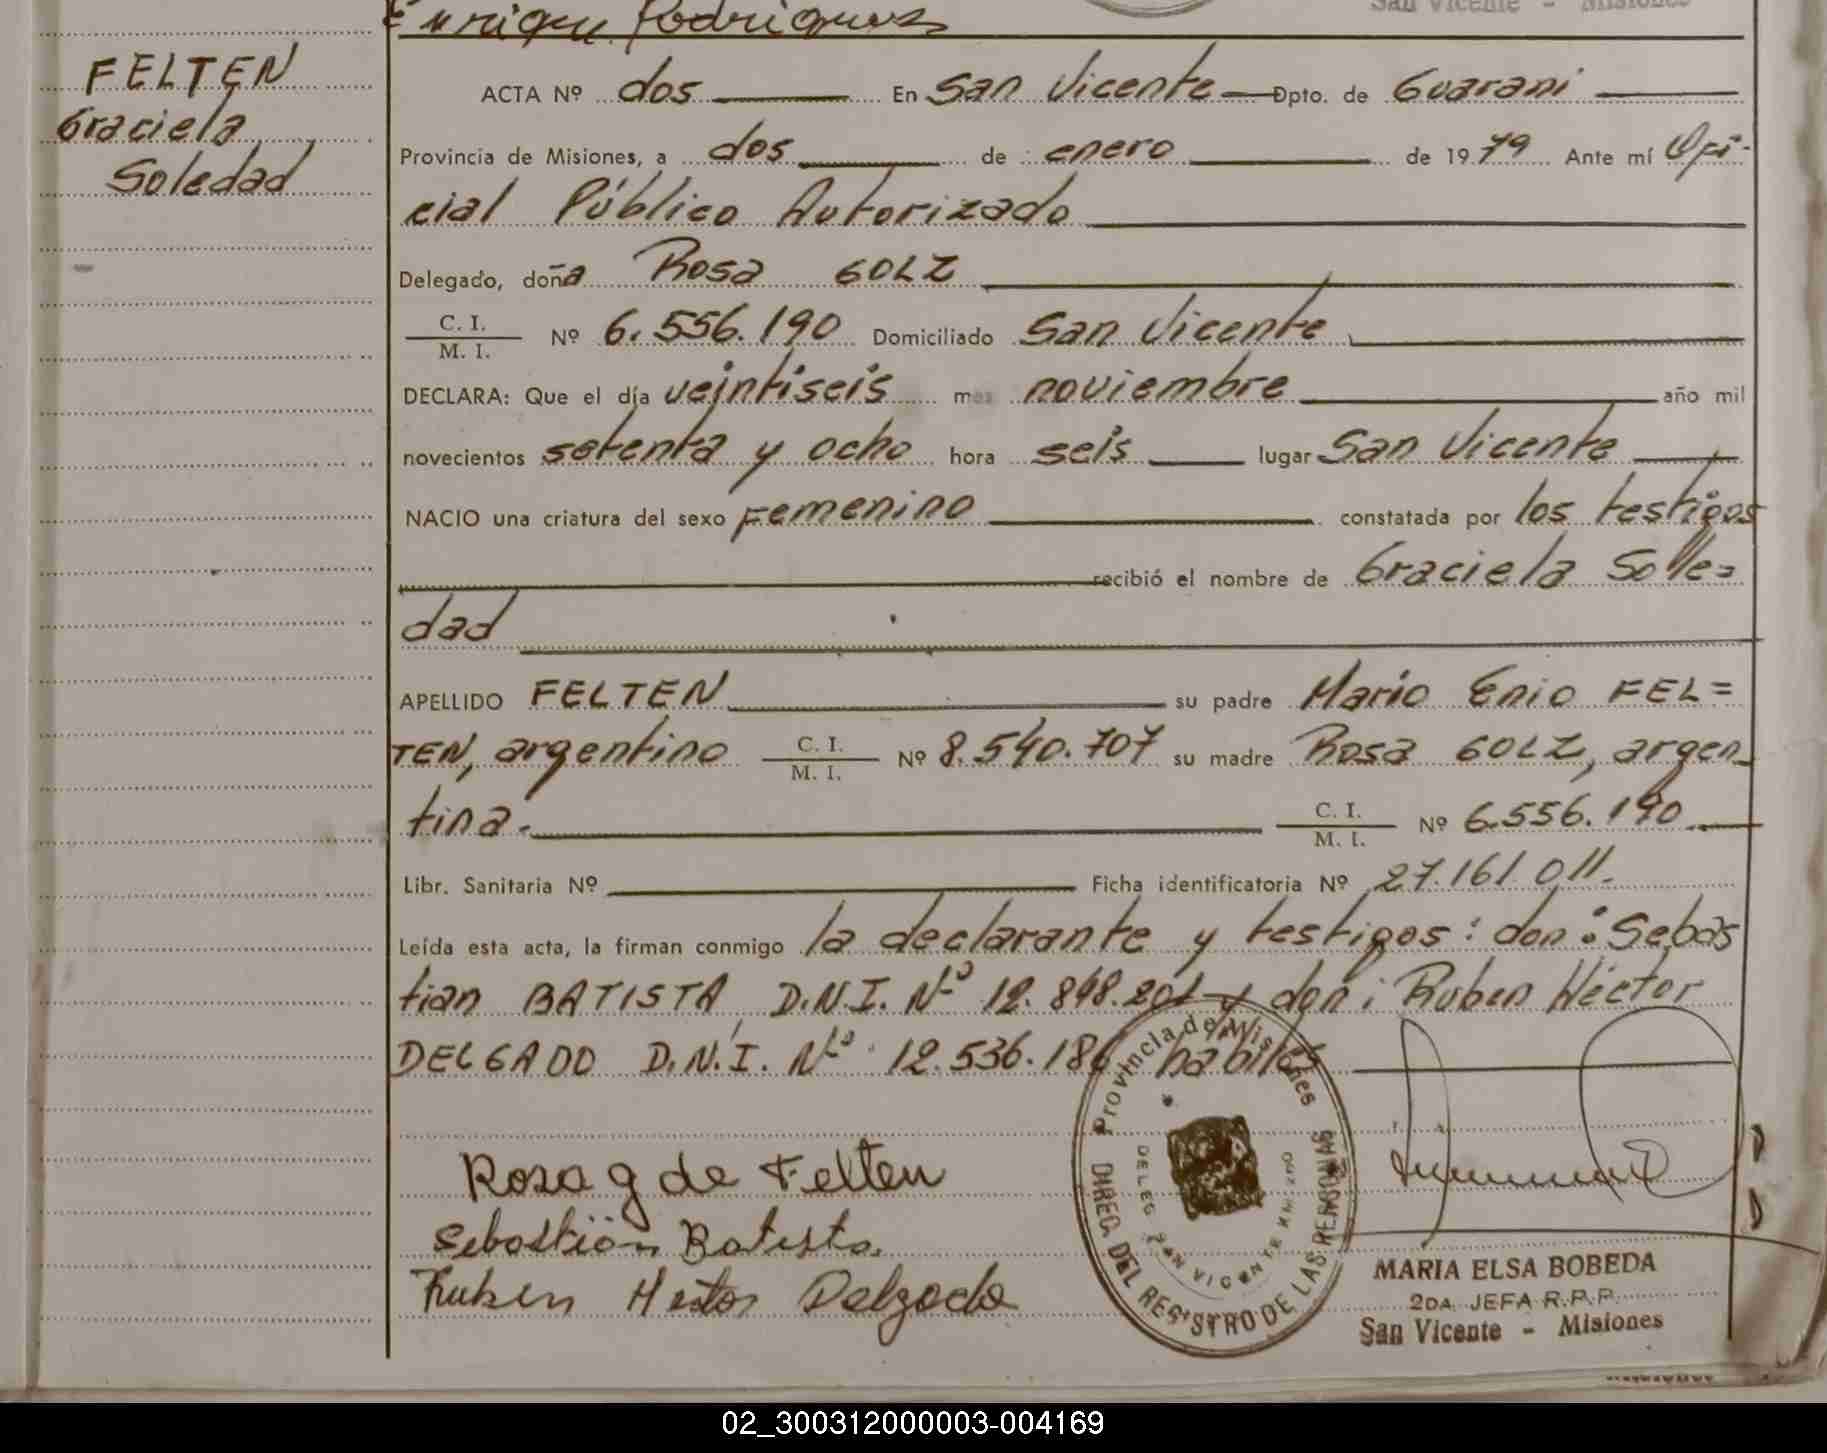 Enrique Rodriguez
San Vicente - Misiones
FELTEN
Graciela
Soledad
ACTA Nº dos En San Vicente Dpto. de Guarani
Provincia de Misiones, a dos de enero de 1979 Ante mí Ofi-
cial Público Autorizado
Delegado, doña Rosa GOLZ
C. I.
M. I. Nº 6.556.190 Domiciliado San Vicente
DECLARA: Que el día veintiseis mes noviembre año mil
novecientos setenta y ocho hora seis lugar San Vicente
NACIO una criatura del sexo Femenino constatada por los testigos
recibió el nombre de Graciela Sole=
dad
APELLIDO FELTEN su padre Mario Enio FEL=
TEN, argentino C. I. M. I. Nº 8.540.707 su madre Rosa GOLZ, argen
tina. C. I. M. I. Nº 6.556.190
Libr. Sanitaria Nº Ficha identificatoria Nº 27.161.011.
Leída esta acta, la firman conmigo la declarante y testigos: don: Sebas
tian BATISTA D.N.I. Nº 12.848.201 y don: Ruben Héctor
DELGADO D.N.I. Nº 12.536.186 habiles
Rosa g de Felten
Sebastián Batista.
Ruben Hector Delgado
Provincia de Misiones
DIREC. DEL REGISTRO DE LAS PERSONAS
DELEG. SAN VICENTE
MARIA ELSA BOBEDA
2DA. JEFA R.P.P.
San Vicente - Misiones
02_300312000003-004169